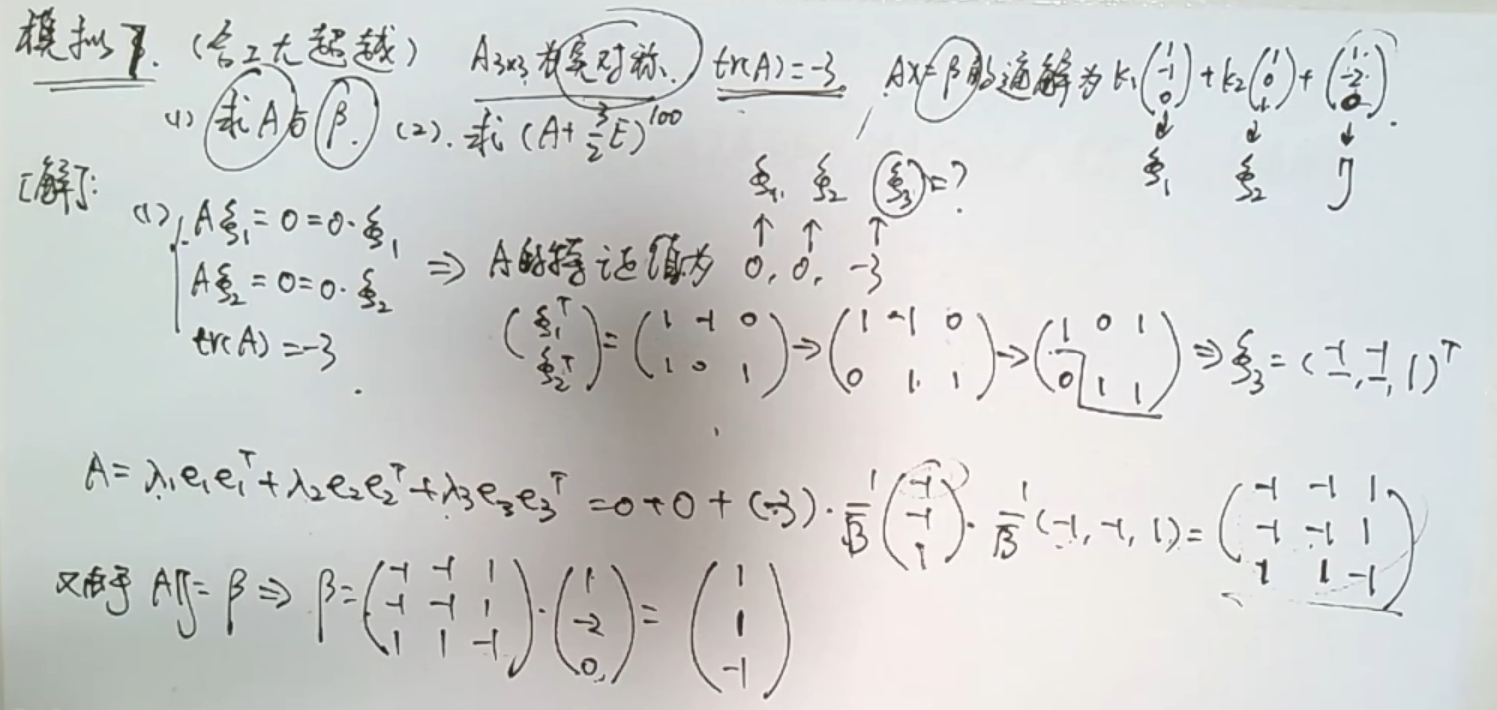 模拟7. (合工大超越) A₃ₓ₃为实对称. tr(A)=-3. AX=β的通解为 k₁(1, -1, 0)+k₂(1, 0, 1)+(1, -2, 0).
(1) 求A与β. (2). 求 (A+3/2E)¹⁰⁰
ξ₁ ξ₂ η
[解]:
ξ₁, ξ₂ ξ₃=?
(1) Aξ₁=0=0·ξ₁
Aξ₂=0=0·ξ₂ ⇒ A的特征值为 0, 0, -3
tr(A)=-3
(ξ₁ᵀ; ξ₂ᵀ)=(1 -1 0; 1 0 1)→(1 -1 0; 0 1 1)→(1 0 1; 0 1 1)⇒ξ₃=(-1, -1, 1)ᵀ
A=λ₁e₁e₁ᵀ+λ₂e₂e₂ᵀ+λ₃e₃e₃ᵀ=0+0+(-3)·1/√3(-1; -1; 1)·1/√3(-1, -1, 1)=(-1 -1 1; -1 -1 1; 1 1 -1)
又由于 Aη=β ⇒ β=(-1 -1 1; -1 -1 1; 1 1 -1)·(1; -2; 0)=(1; 1; -1)